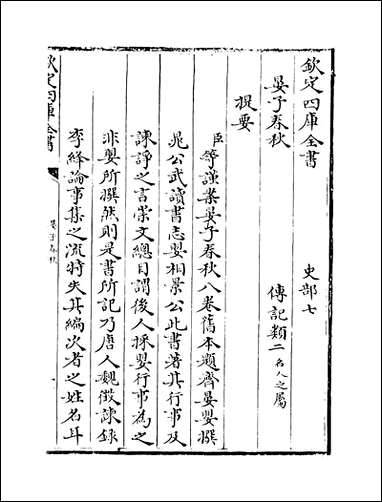 欽定四庫全書
史部七
晏子春秋
傳記類二名人之屬
提要
臣等謹案晏子春秋八卷舊本題齊晏嬰撰
晁公武讀書志嬰相景公此書著其行事及
諫諍之言崇文總目謂後人採嬰行事為之
非嬰所撰然則是書所記乃唐人魏徵諫録
李絳論事集之流特失其編次者之姓名耳
欽定四庫全書
晏子春秋
一